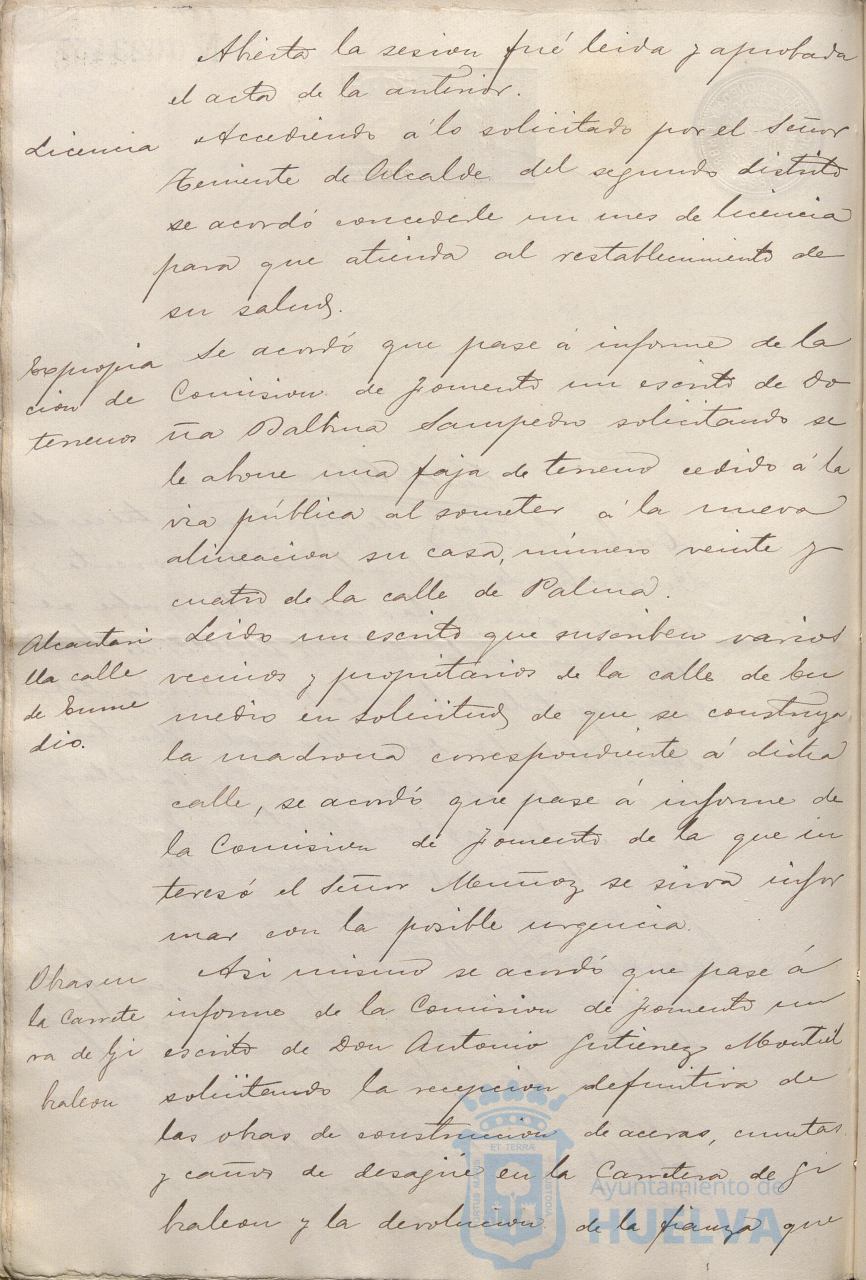 Abierta la sesion fué leida y aprobada
el acta de la anterior.
Licencia
Accediendo á lo solicitado por el Señor
Teniente de Alcalde del segundo distrito
se acordó concederle un mes de licencia
para que atienda al restablecimiento de
su salud.
Expropia
cion de
terrenos
Se acordó que pase á informe de la
Comision de Fomento un escrito de Do-
ña Balbina Sampedro solicitando se
le abone una faja de terreno cedido á la
via pública al someter á la nueva
alineacion su casa, número veinte y
cuatro de la calle de Palma.
Alcantari
lla calle
de Enme
dio.
Leido un escrito que suscriben varios
vecinos y propietarios de la calle de En
medio en solicitud de que se construya
la madrona correspondiente á dicha
calle, se acordó que pase á informe de
la Comision de Fomento de la que in
teresó el Señor Muñoz se sirva infor
mar con la posible urgencia.
Obras en
la Carrete
ra de Gi
braleon
Asi mismo se acordó que pase á
informe de la Comision de Fomento un
escrito de Don Antonio Gutierrez Montiel
solicitando la recepcion definitiva de
las obras de construccion de aceras, cunetas
y caños de desagüe en la Carretera de Gi
braleon y la devolucion de la fianza que
ET TERRÆ
CUSTODIA
Ayuntamiento de
HUELVA